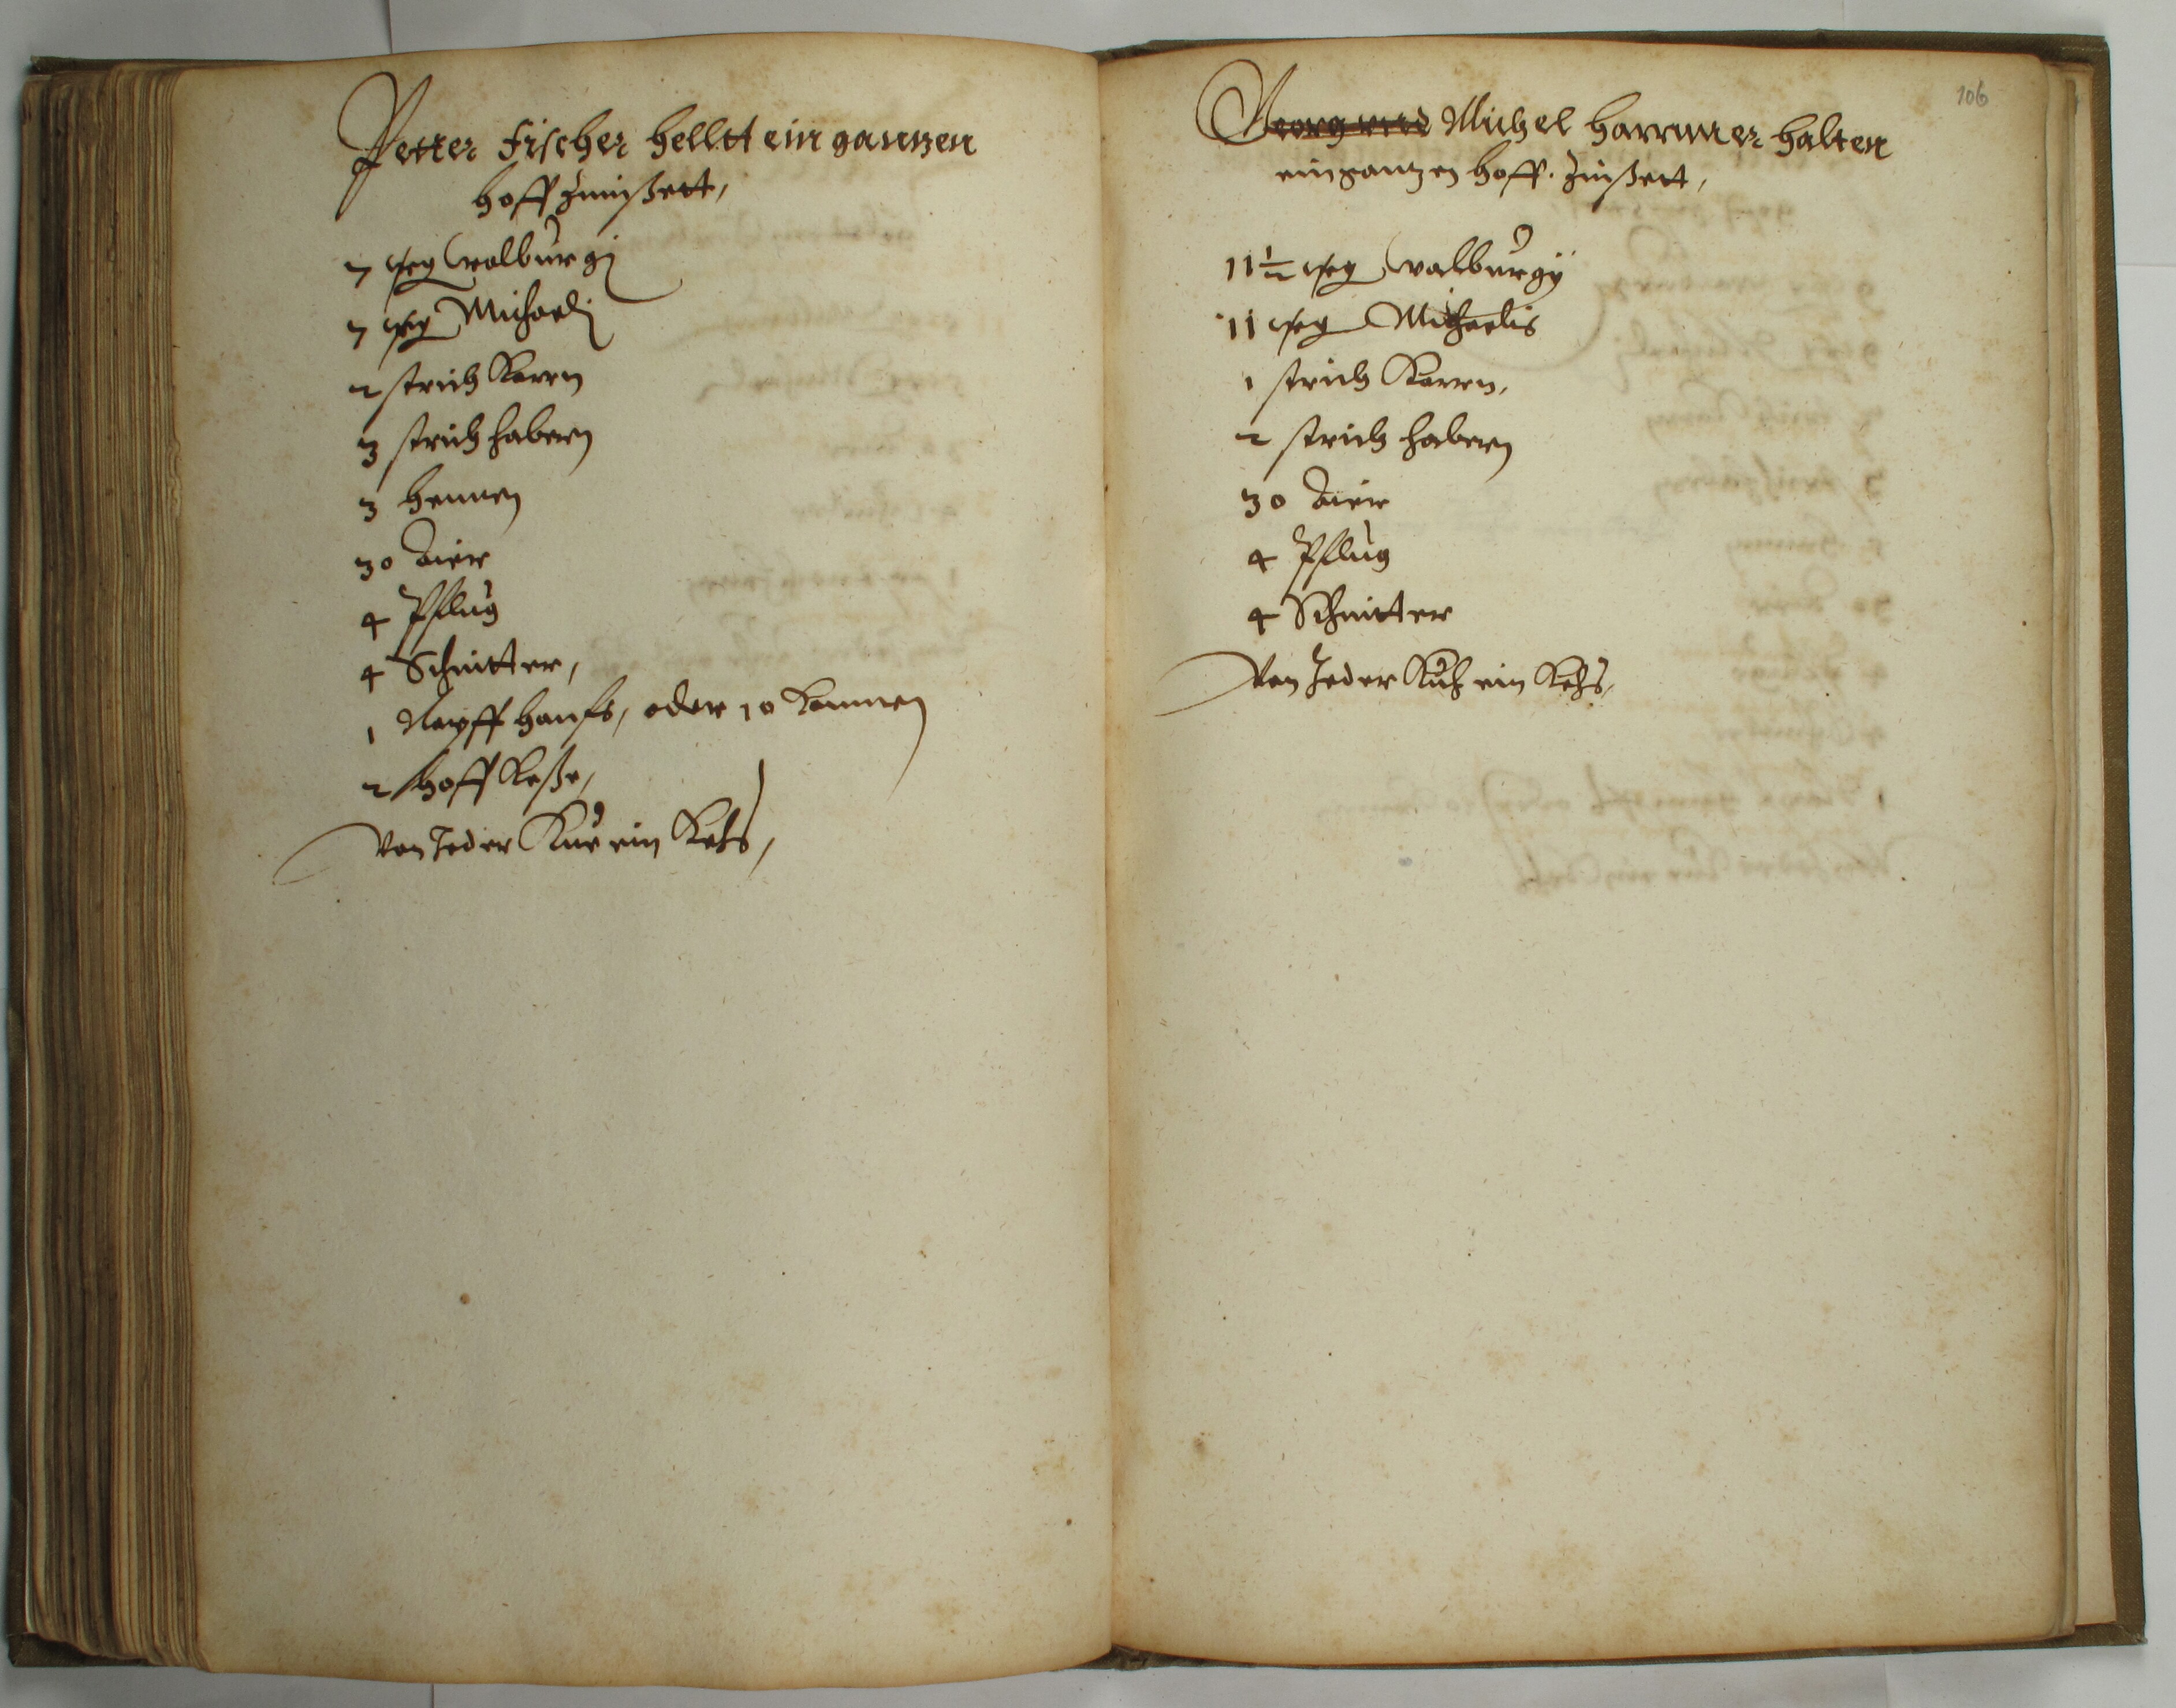 Petter Fischer helltt ein ganzen
hoff Zinnßett,
7 ßg Walburgj
7 ßg Michaelj
2 strich Korn
3 strich habern
3 hennen
30 Aier
4 Pflug
4 Schnitter,
1 Napff hanfs, oder 10 Kannen
2 hoff Keße,
Von Jeder Kue ein Kehs,
106
Georg und Michel Hammer halten
ein gantzen hoff. Zinßett,
11½ ßg Walburgÿ
11 ßg Michaelis
1 strich Korn,
2 strich habern
30 Aier
4 Pflug
4 Schnitter
Von Jeder Kuh ein Kehs,